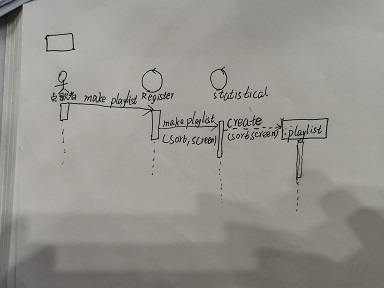 点歌者
Register
statistical
make playlist
make playlist
(sort, screen)
create
(sort, screen)
:playlist